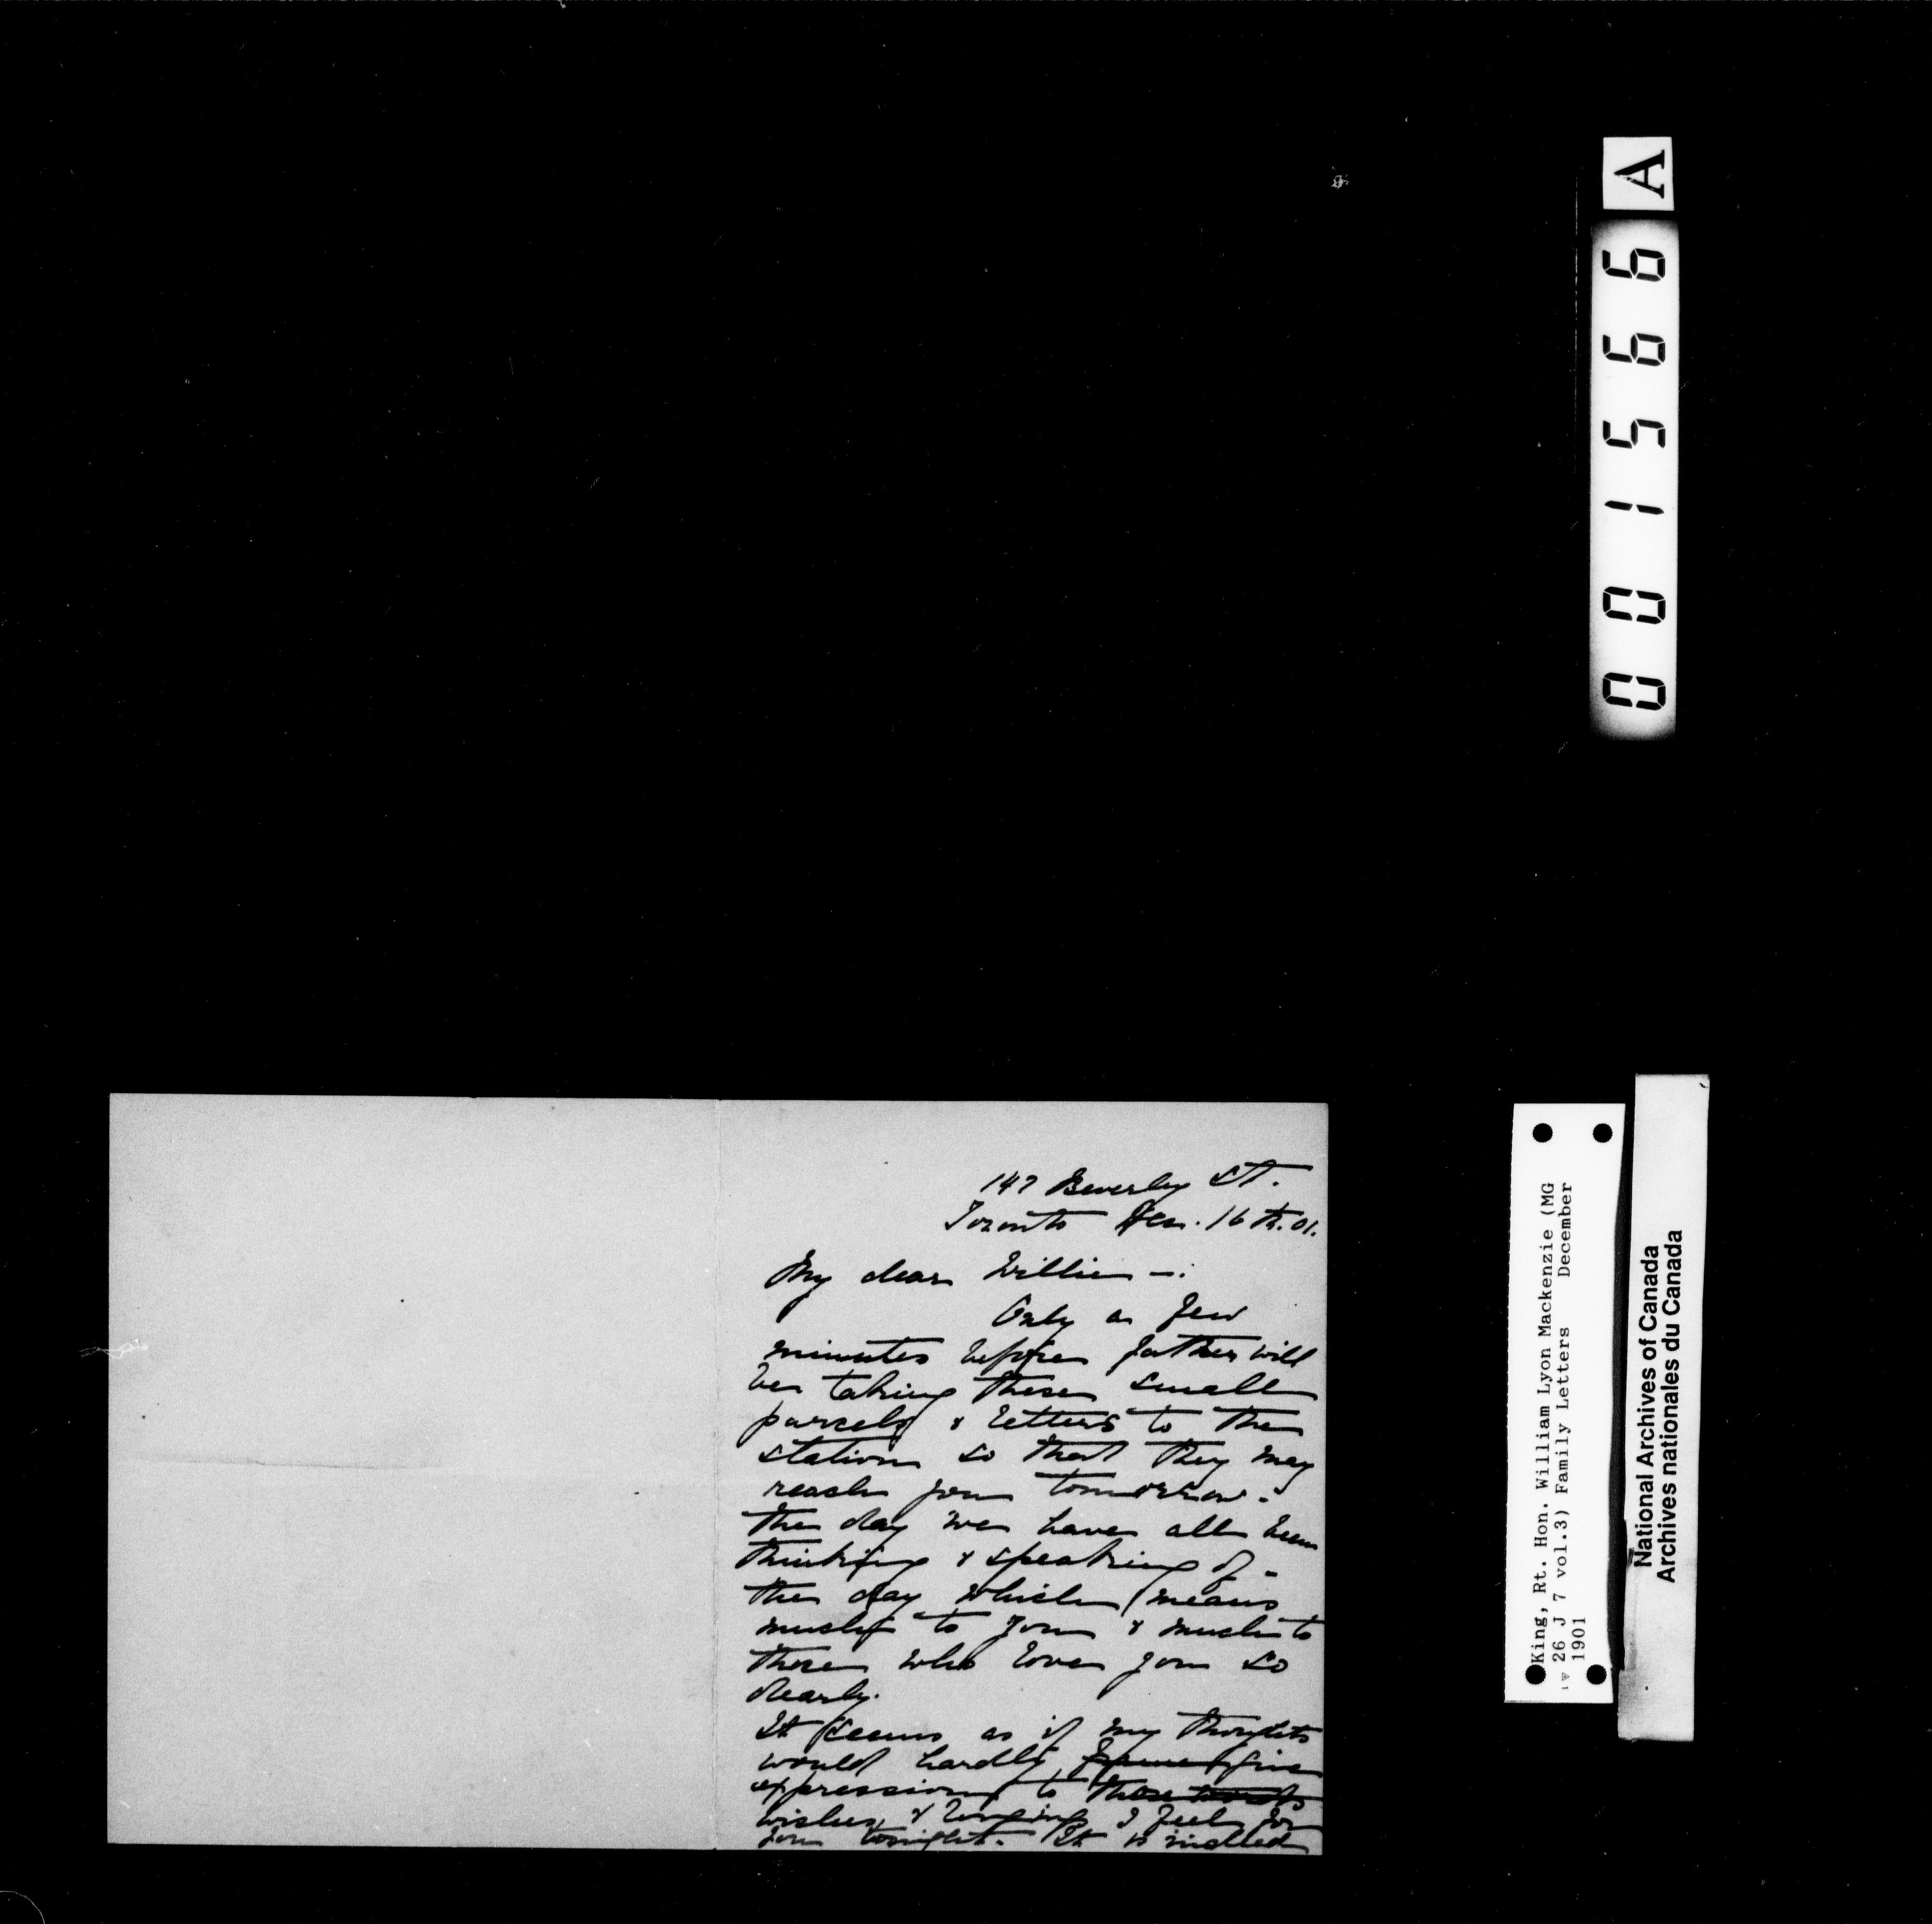 A
001566
147 Beverley St.
Toronto Dec. 16th. 01.
My dear Willie —:
Only a few
minutes before father will
be taking these small
parcels & letters to the
station so that they may
reach you tomorrow -
the day we have all been
thinking & speaking of -
the day which means
much to you & much to
those who love you so
dearly.
It seems as if my thoughts
would hardly give
expression to these
wishes & longings I feel for
you tonight. It is indeed
King, Rt. Hon. William Lyon Mackenzie (MG
26 J 7 vol.3) Family Letters December
1901
National Archives of Canada
Archives nationales du Canada